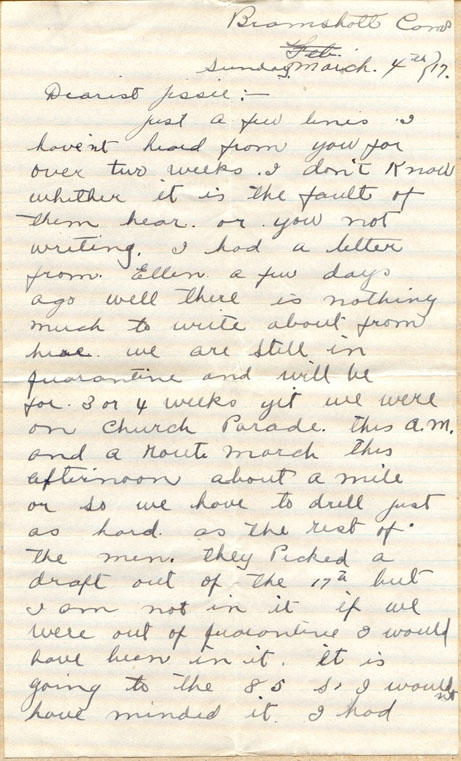 Bramshott Camp
Feb.
Sunday March. 4th/17.
Dearest Jssie:—
just a few lines. I
havent heard from you for
over two weeks. I don't Know
whether it is the fault of
them hear. or you not
writing. I had a letter
from. Ellen a few days
ago well there is nothing
much to write about from
here. we are still in
quarantine and will be
for. 3 or 4 weeks yet we were
on Church Parade. this a.m.
and a route march this
afternoon about a mile
or so we have to drill just
as hard. as the rest of
the men. they Picked a
draft out of the 17th but
I am not in it if we
were out of quarantine I would
have been in it. it is
going to the 85 so I would
not
have minded it. I had